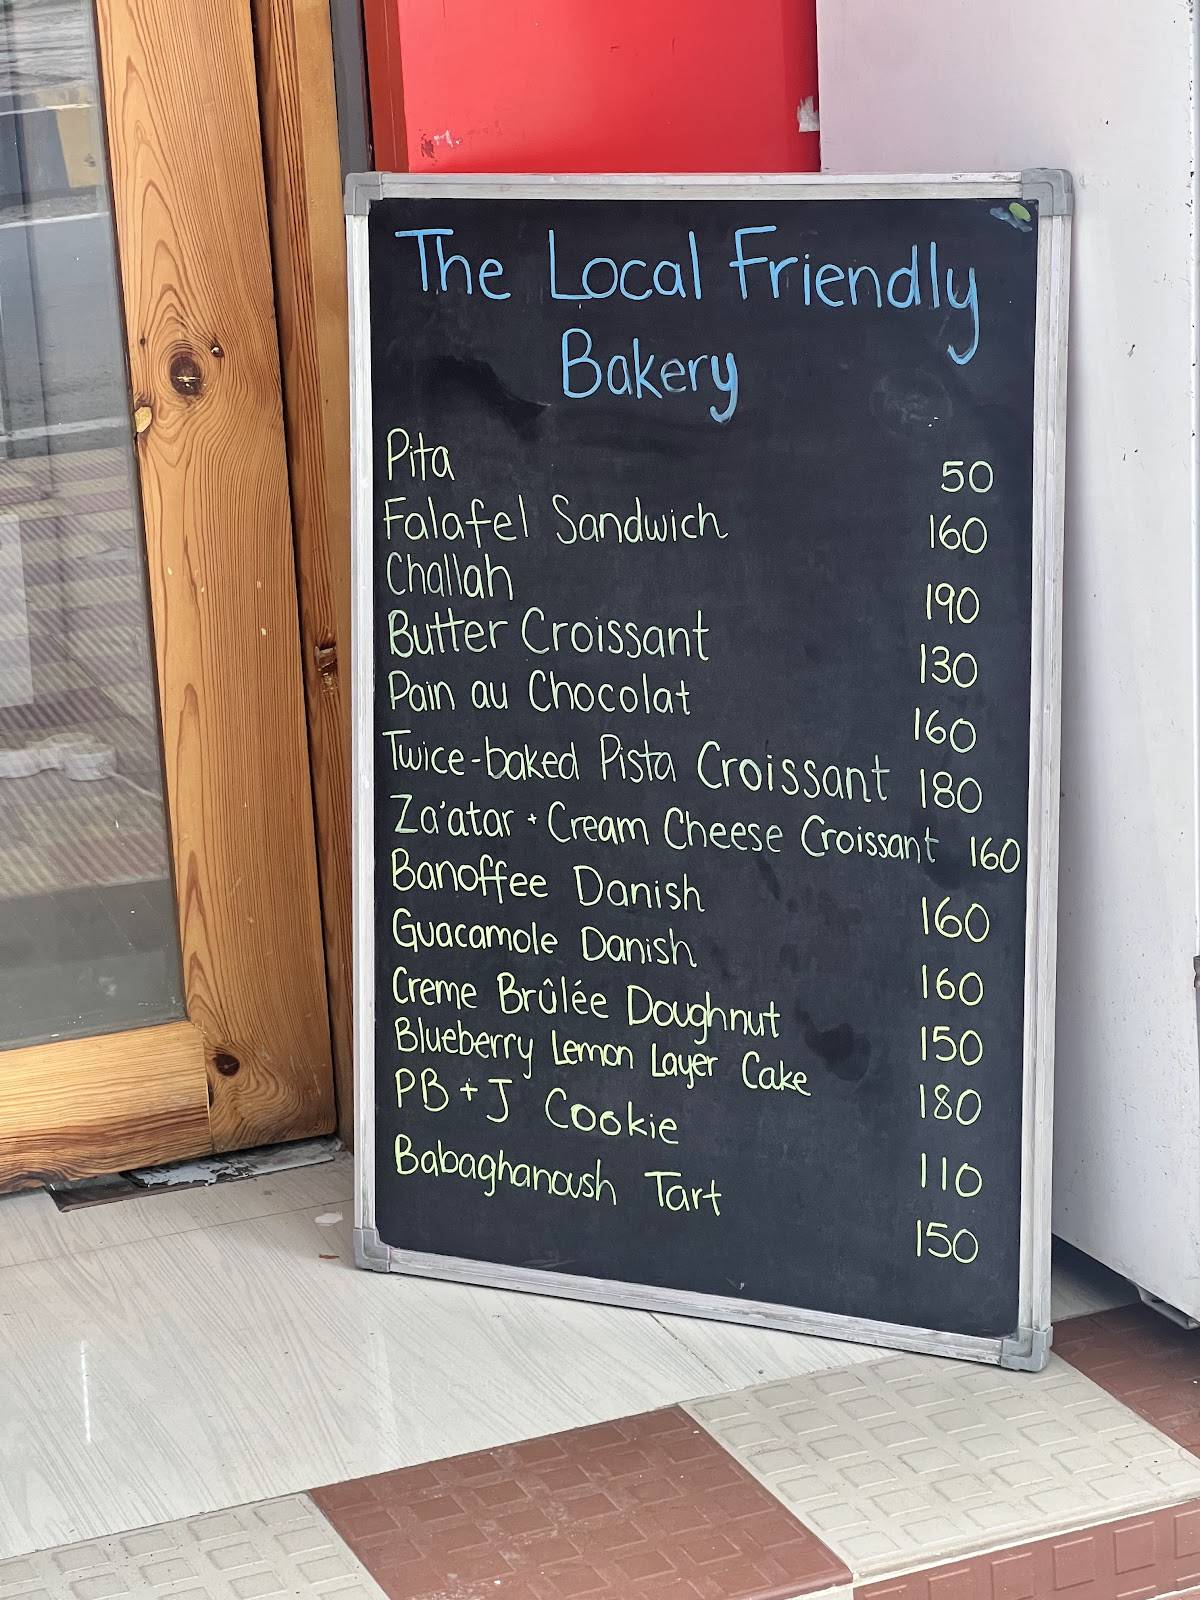 The Local Friendly
Bakery
Pita 50
Falafel Sandwich 160
Challah 190
Butter Croissant 130
Pain au Chocolat 160
Twice-baked Pista Croissant 180
Za'atar + Cream Cheese Croissant 160
Banoffee Danish 160
Guacamole Danish 160
Creme Brûlée Doughnut 150
Blueberry Lemon Layer Cake 180
PB + J Cookie 110
Babaghanoush Tart 150